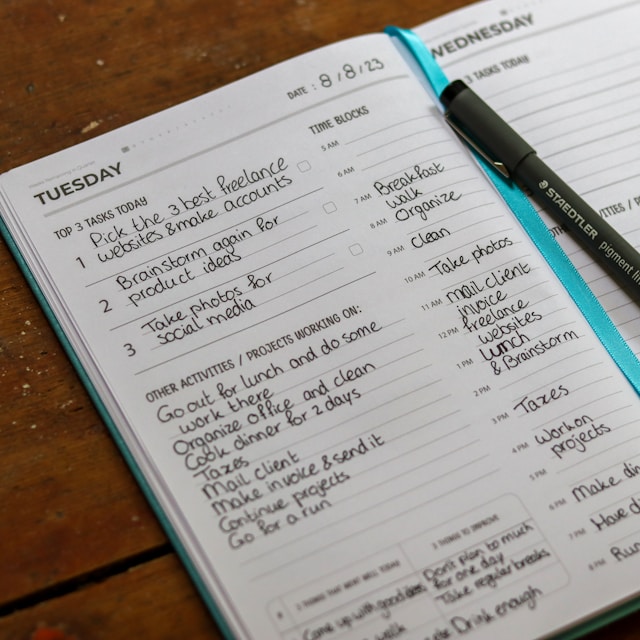 TUESDAY
DATE: 8/8/23
TOP 3 TASKS TODAY
1 Pick the 3 best freelance
websites & make accounts
2 Brainstorm again for
product ideas
3 Take photos for
social media
OTHER ACTIVITIES / PROJECTS WORKING ON:
Go out for lunch and do some
work there
Organize office and clean
Cook dinner for 2 days
Taxes
Mail client
Make invoice & send it
Continue projects
Go for a run
TIME BLOCKS
5 AM
6 AM
7 AM Breakfast
walk
8 AM Organize
9 AM Clean
10 AM Take photos
11 AM Mail client
invoice
12 PM freelance
websites
1 PM Lunch
& Brainstorm
2 PM
3 PM Taxes
4 PM work on
projects
5 PM
6 PM Make
7 PM Have
8 PM Run
3 THINGS THAT WENT WELL TODAY
Come up with good
walk
3 THINGS TO IMPROVE
Don't plan to much
for one day
Take regular breaks
Drink enough
WEDNESDAY
3 TASKS TODAY
STAEDTLER
pigment